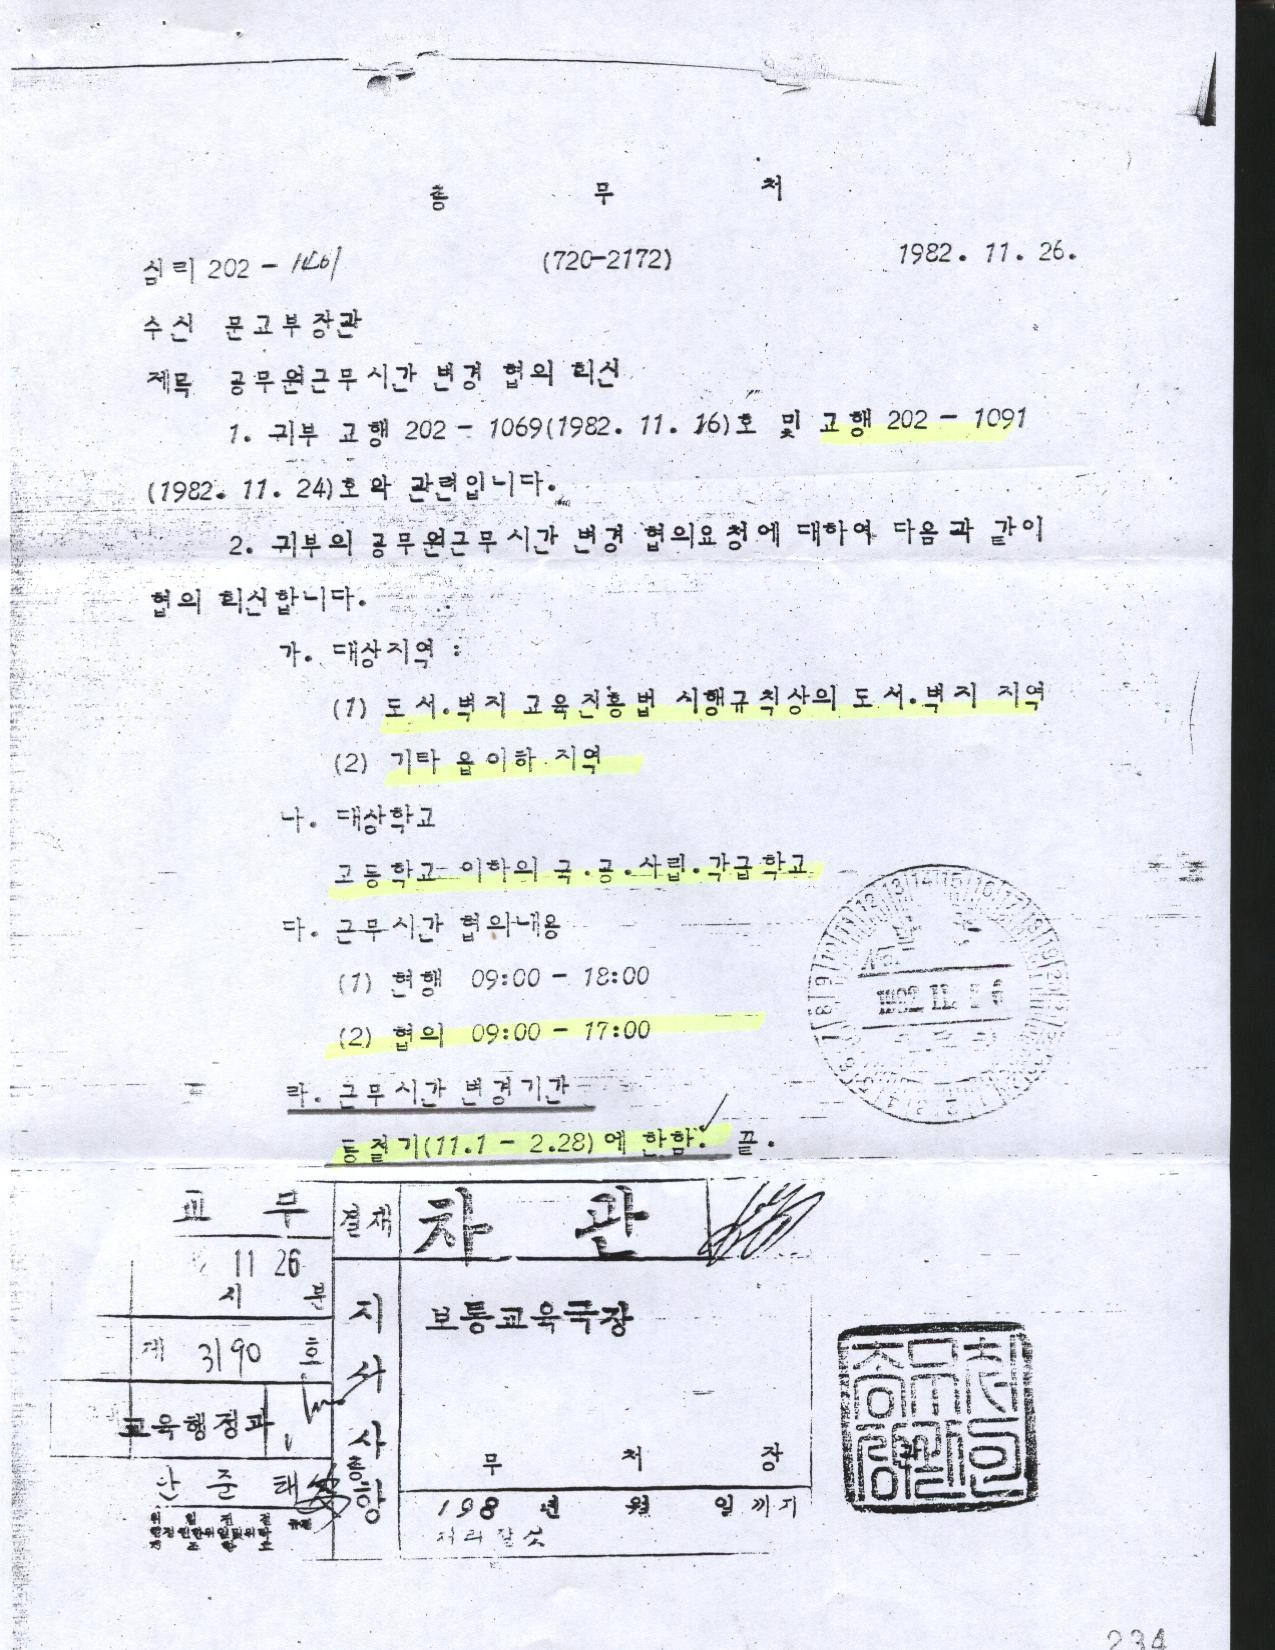 총 무 처
심리 202 - (720-2172) 1982. 11. 26.
수신 문교부장관
제목 공무원근무시간 변경 협의 회신
1. 귀부 교행 202 - 1069(1982. 11. 16)호 및 교행 202 - 1091
(1982. 11. 24)호와 관련입니다.
2. 귀부의 공무원근무시간 변경 협의요청에 대하여 다음과 같이
협의 회신합니다.
가. 대상지역 :
(1) 도서.벽지 교육진흥법 시행규칙상의 도서.벽지 지역
(2) 기타 읍이하 지역
나. 대상학교
고등학교 이하의 국.공.사립.각급학교
다. 근무시간 협의내용
(1) 현행 09:00 - 18:00
(2) 협의 09:00 - 17:00
라. 근무시간 변경기간
동절기(11.1 - 2.28)에 한함. 끝.
교 무
결재
차 관
11 26
시 분
제 3190 호
지시사항
보통교육국장
교육행정과
안 준 태
총 무 처 장
198 년 월 일까지
처리할것
234